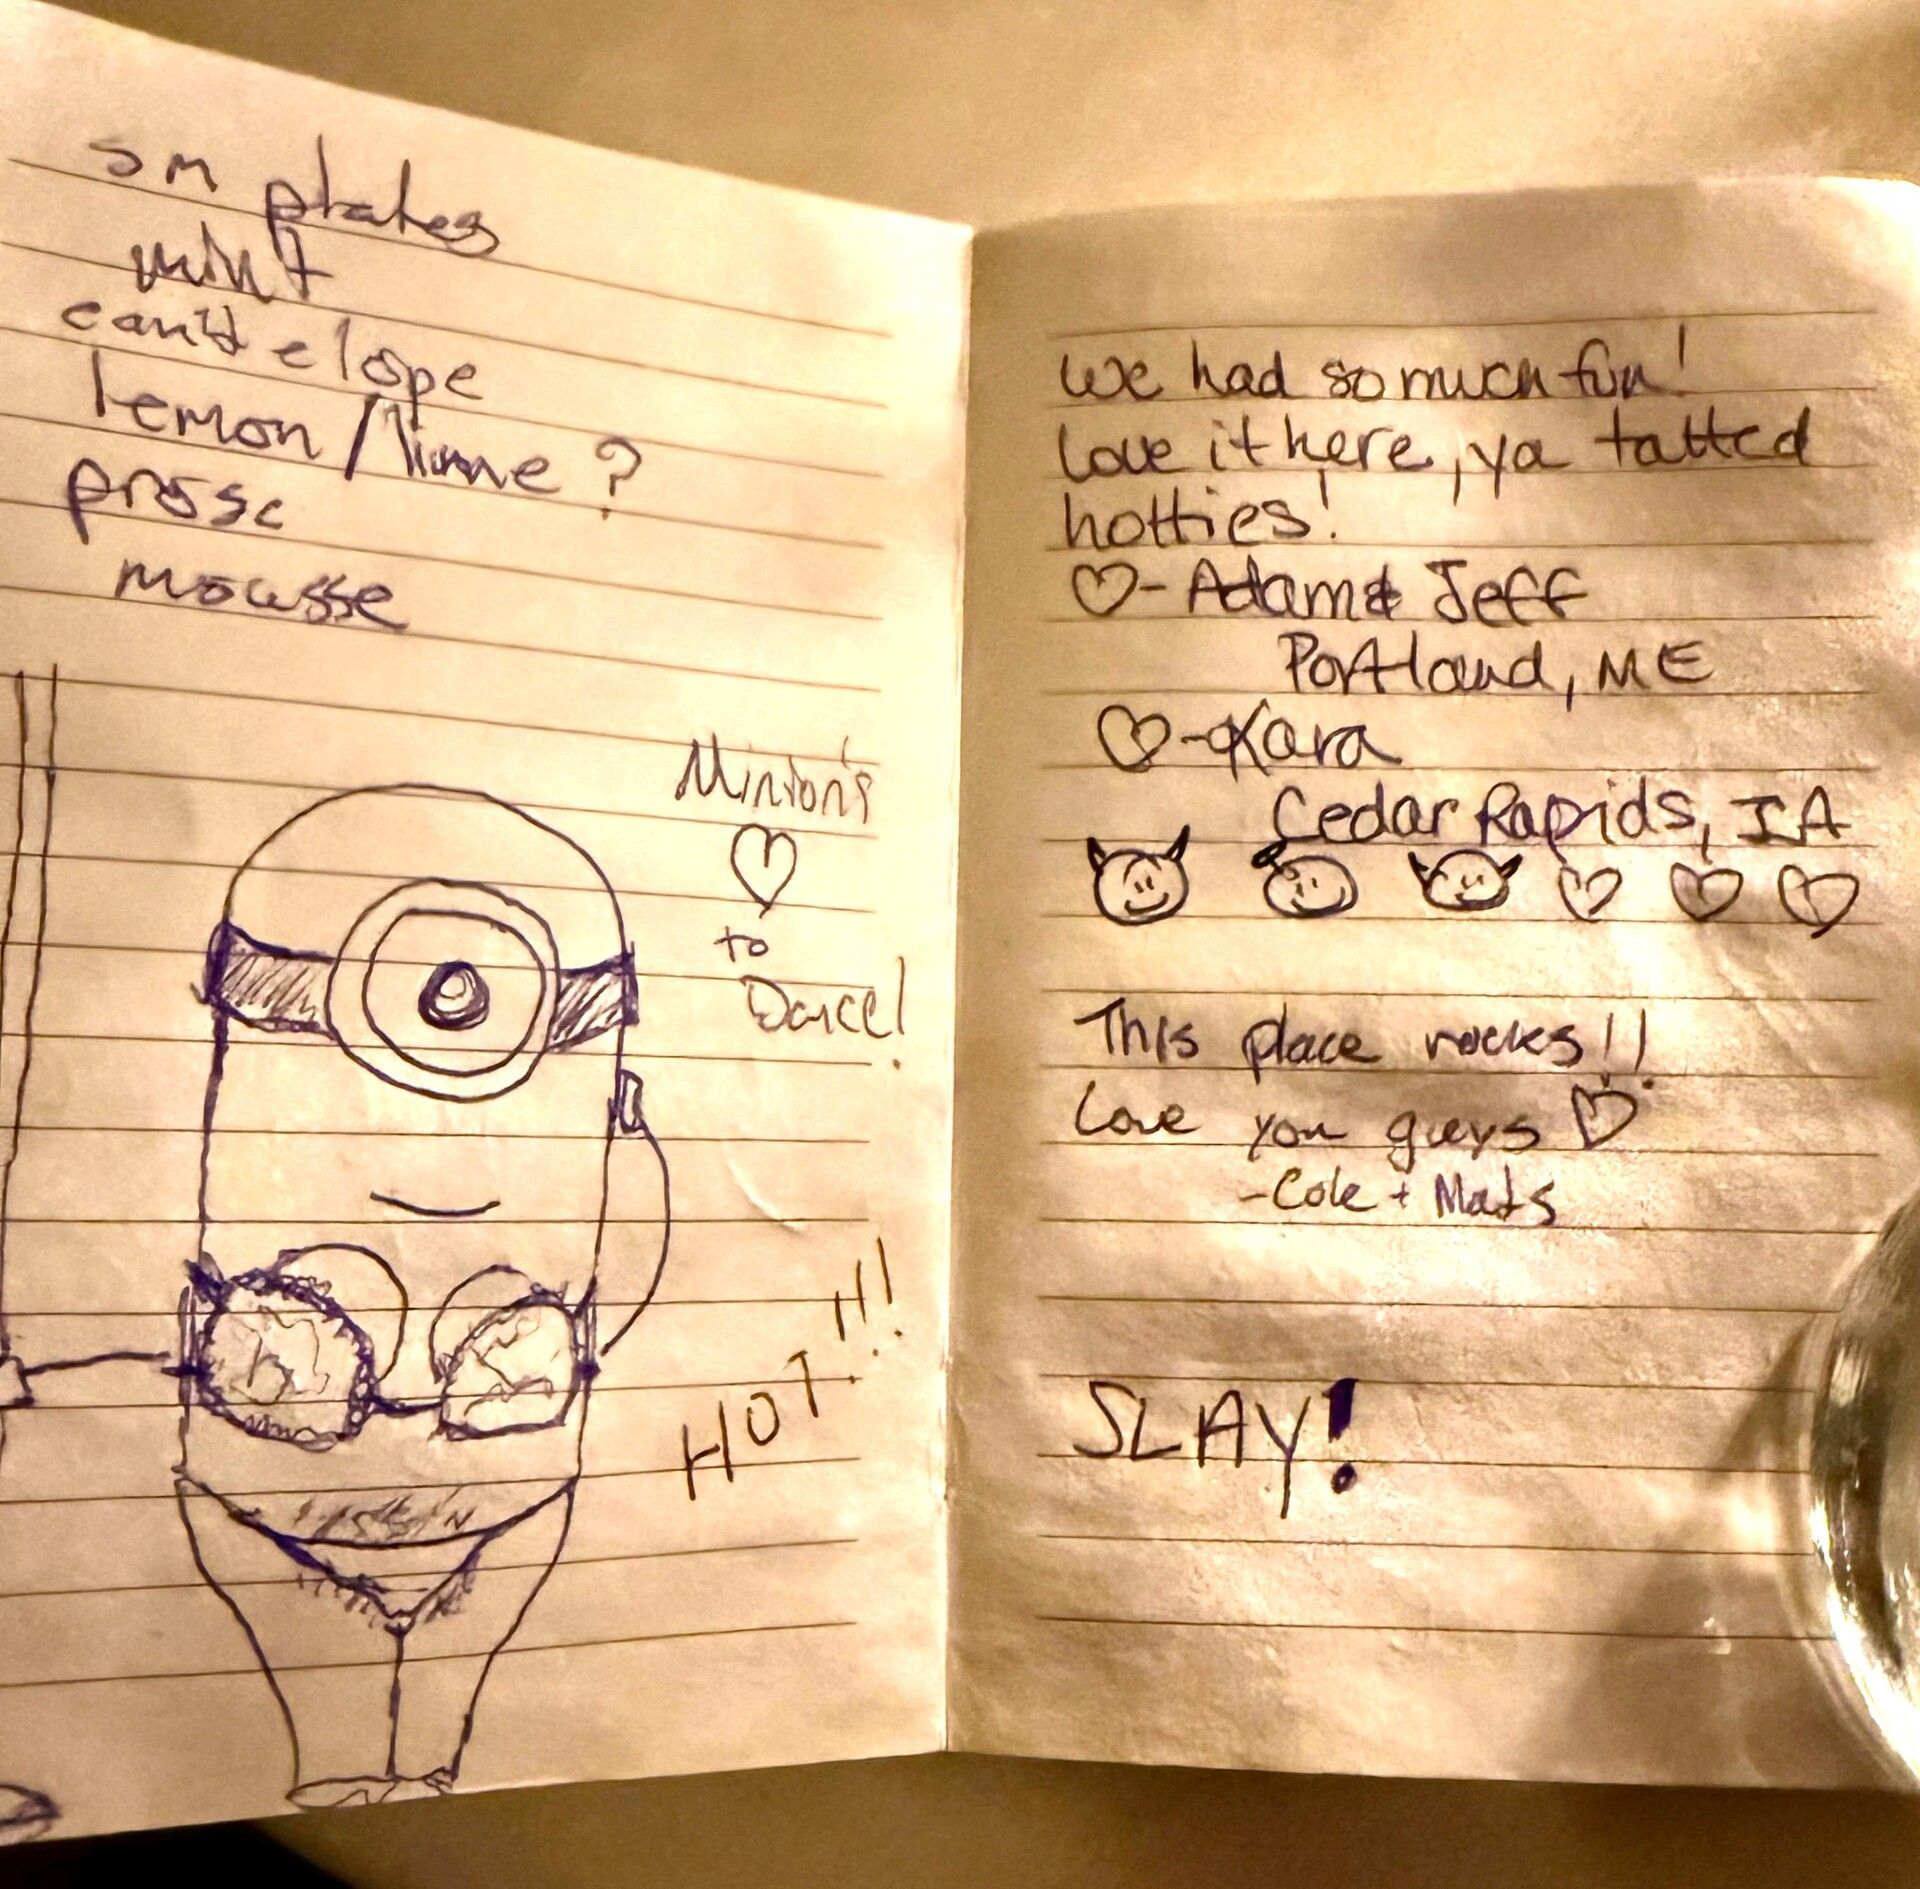 sm plates
mint
cantelope
lemon/lime?
prosc
mousse
Minion's
to
Dance!
HOT!!!
We had so much fun!
Love it here, ya tatted
hotties!
- Adam & Jeff
Portland, ME
- Kara
Cedar Rapids, IA
This place rocks!!
Love you guys
- Cole + Mads
SLAY!